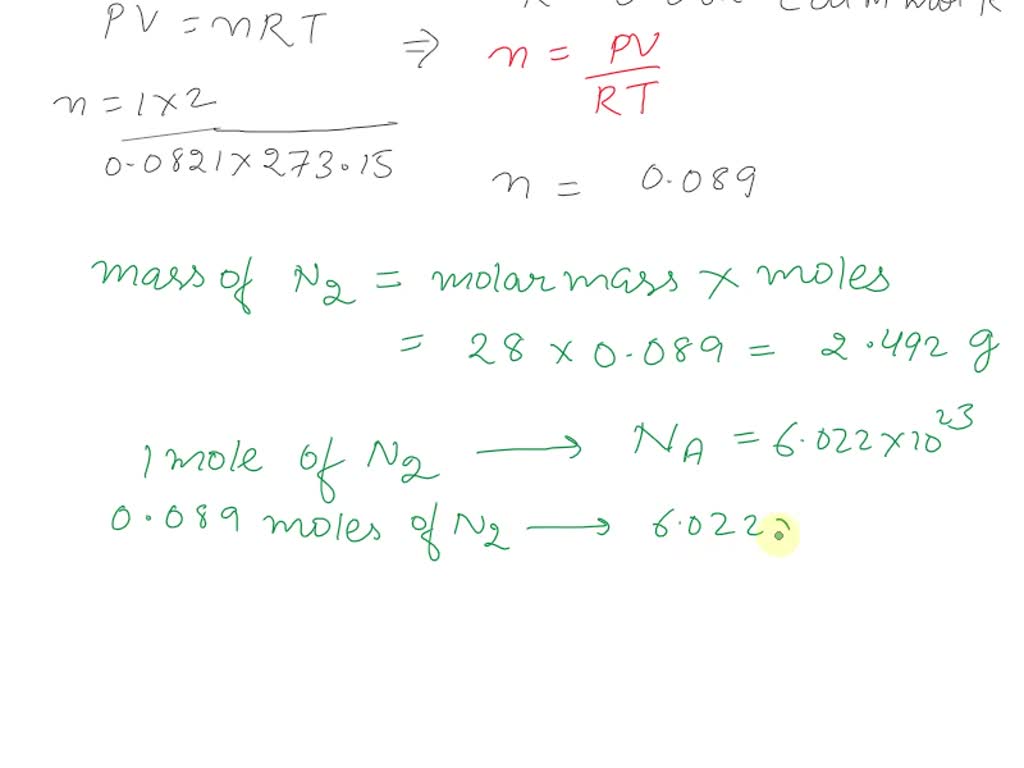 PV = nRT ⇒ n = PV / RT
n = 1 × 2 / 0.0821 × 273.15
n = 0.089
mass of N₂ = molar mass × moles
= 28 × 0.089 = 2.492 g
1 mole of N₂ → N_A = 6.022 × 10²³
0.089 moles of N₂ → 6.022